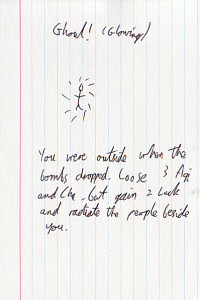 Ghoul! (Glowing)
You were outside when the
bombs dropped. Loose 3 Agi
and Cha, but gain 2 Luck
and radiate the people beside
you.